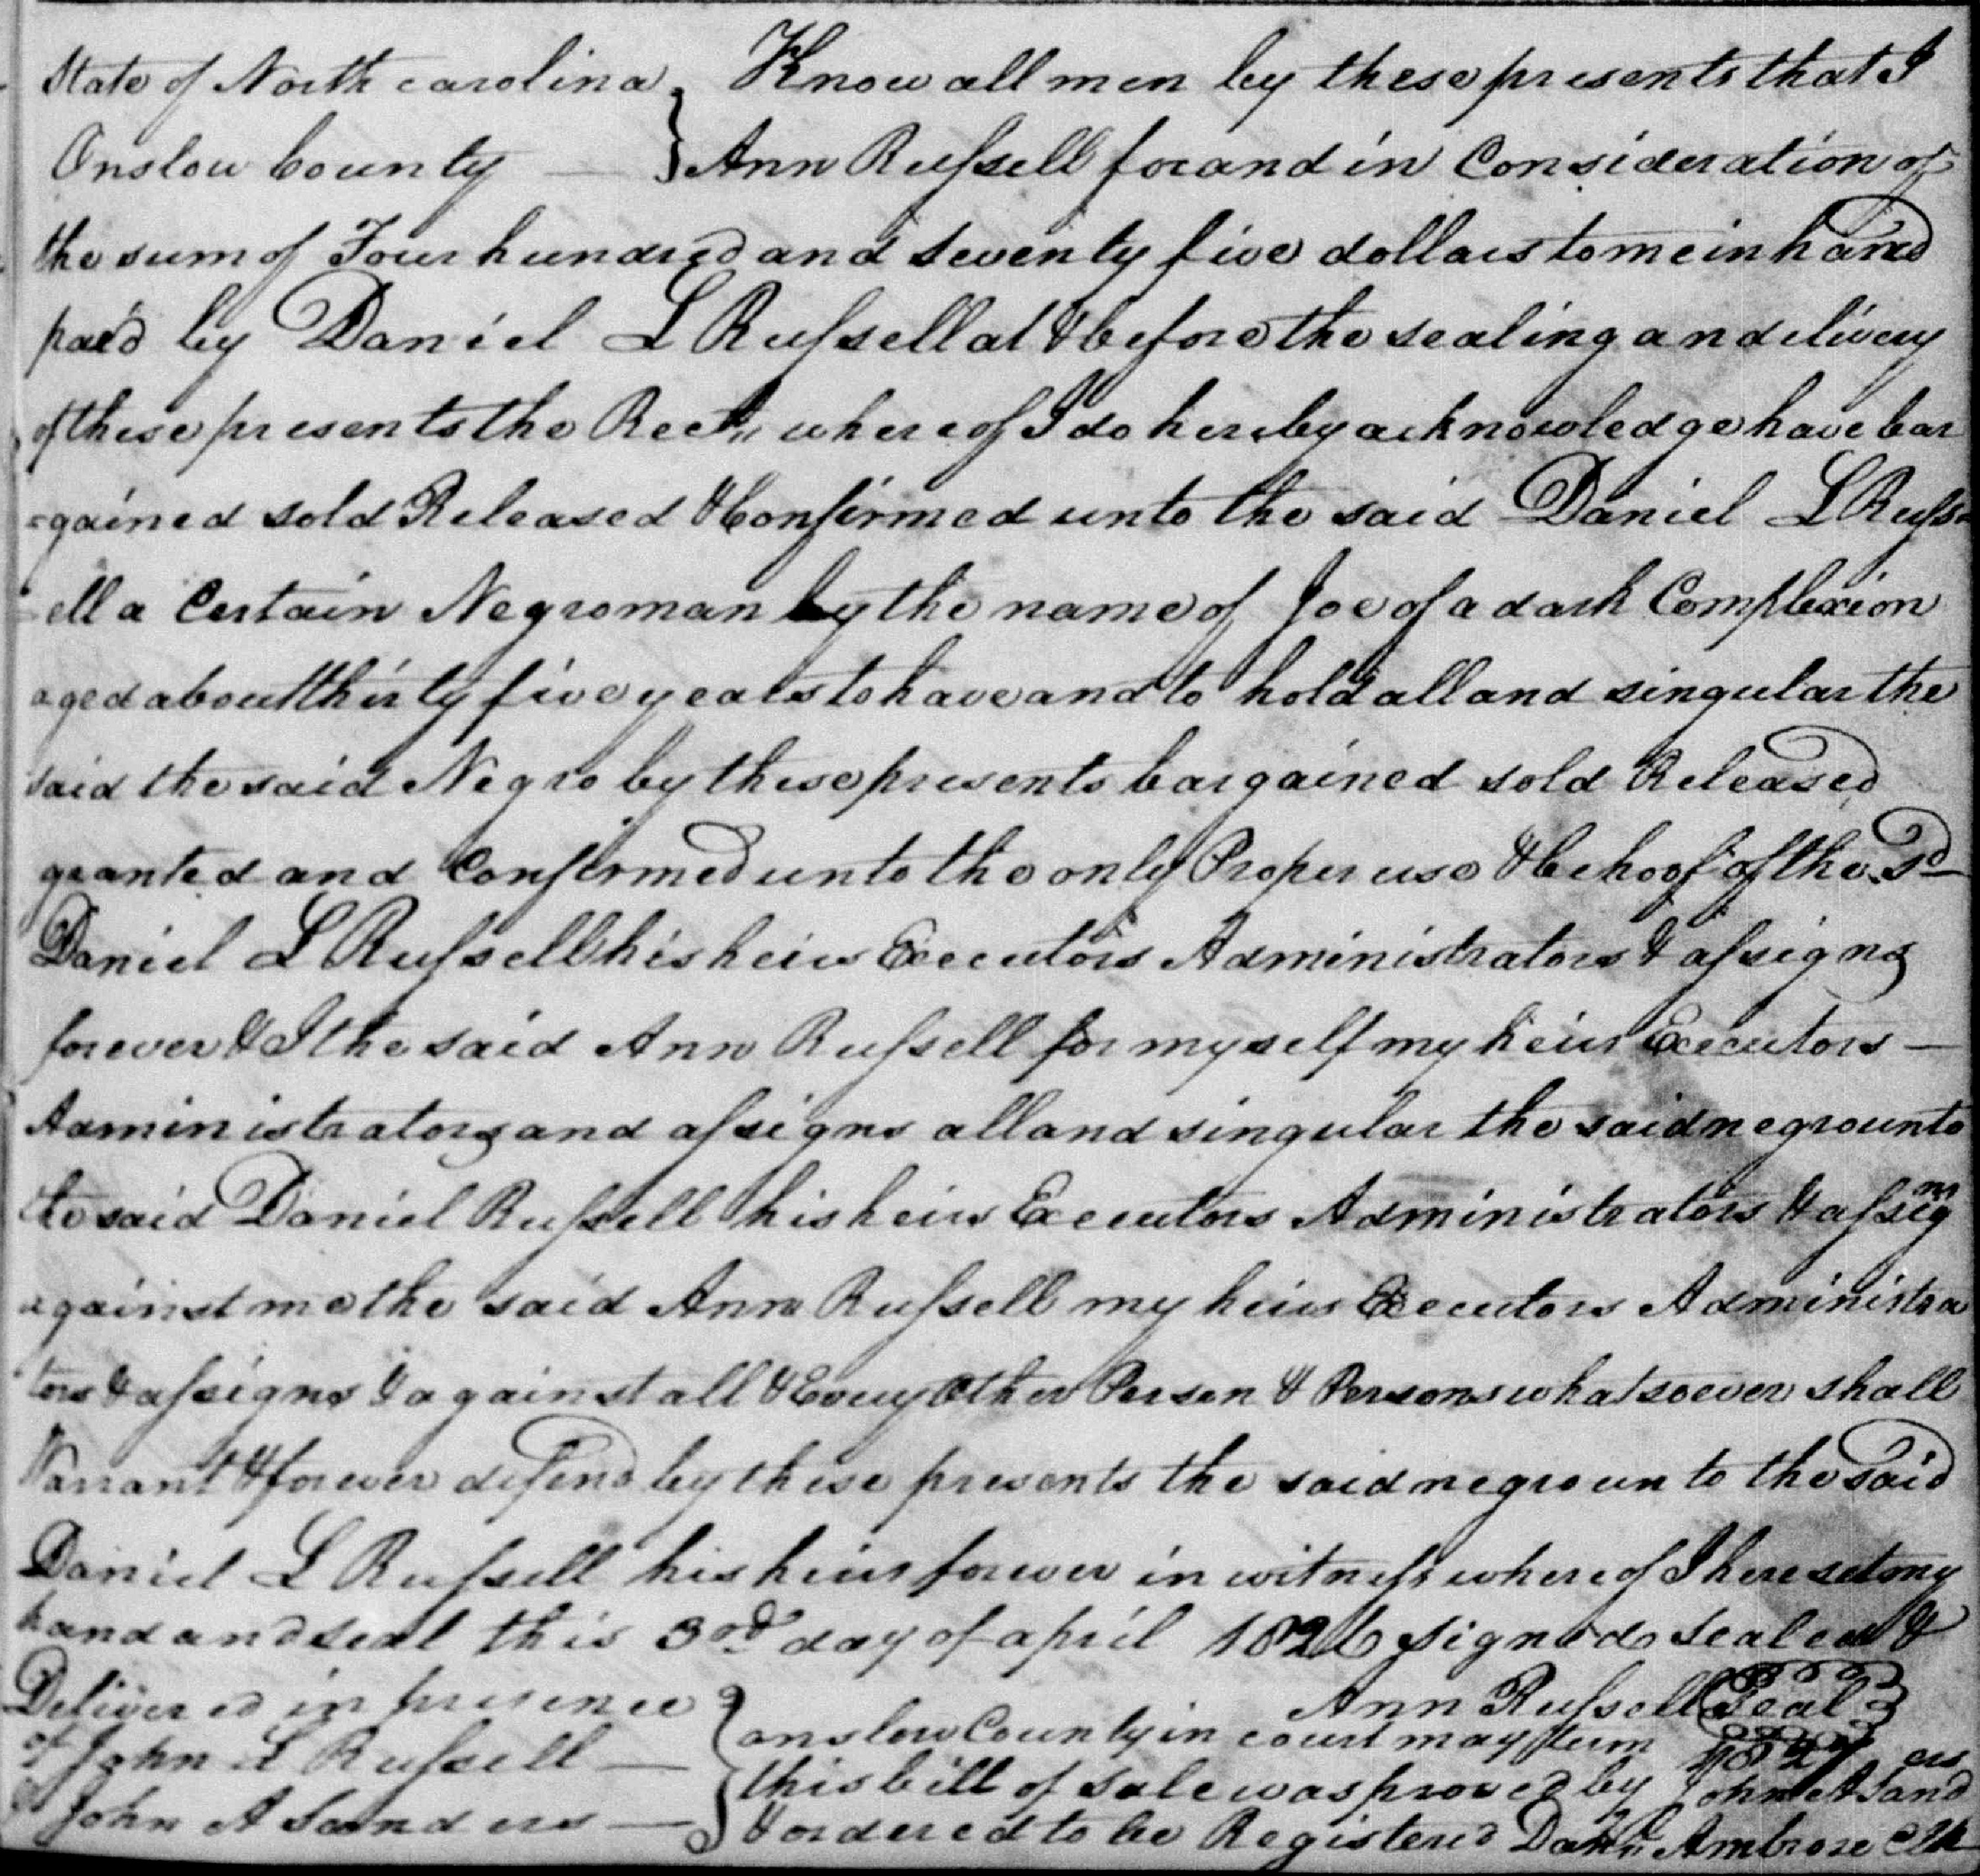 State of North carolina } Know all men by these presents that I
Onslow County — } Ann Russell for and in Consideration of
the sum of Four hundred and seventy five dollars to me in hand
paid by Daniel L Russell at & before the sealing and delivery
of these presents the Rect. whereof I do hereby acknowledge have bar
=gained sold Released & Confirmed unto the said Daniel L Russ=
=ell a Certain Negro man by the name of Joe of a dark Complexion
aged about thirty five years to have and to hold all and singular the
said the said Negro by these presents bargained sold Released
granted and Confirmed unto the only Proper use & behoof of the Sd
Daniel L Russell his heirs Executors Administrators & assigns
forever & I the said Ann Russell for myself my heirs Executors —
Administrators and assigns all and singular the said negro unto
the said Daniel Russell his heirs Executors Administrators & assigns
against me the said Ann Russell my heirs Executors Administra
tors & assigns & against all & Every Other Person & Persons whatsoever shall
Warrant & forever defend by these presents the said negro unto the Said
Daniel L Russell his heirs forever in witness whereof I here set my
hand and seal this 3rd day of april 1826 signed sealed &
Delivered in presence } Ann Russell Seal
of John L Russell — } onslow County in court may term
John A Sanders — } this bill of sale was proved by John A Sanders
& ordered to be Registered Ambrose Clk